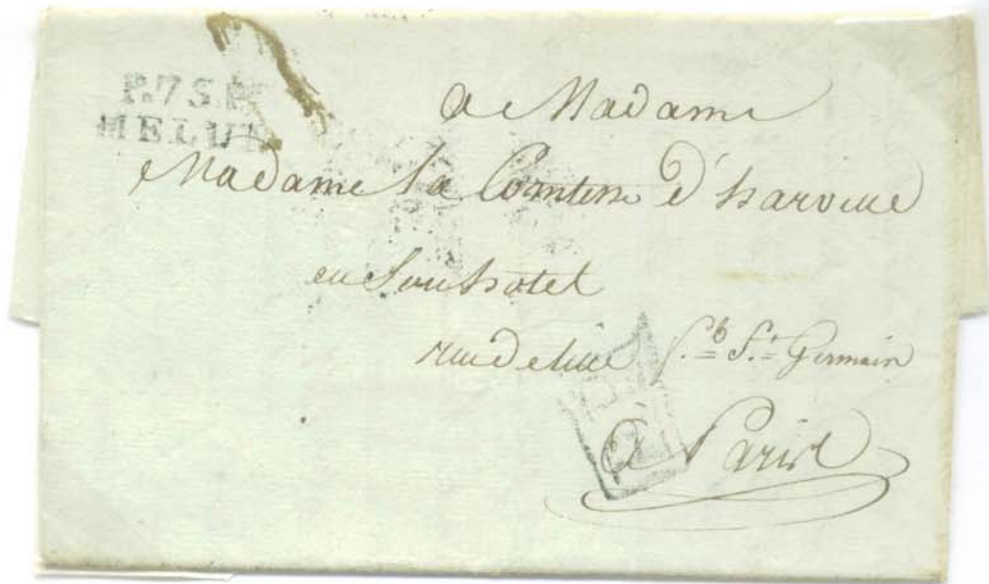 P.7 S.P.
MELUN
a Madame
Madame la Comtesse d'harville
en Son hotel
rue de lille f.b S.t Germain
à Paris